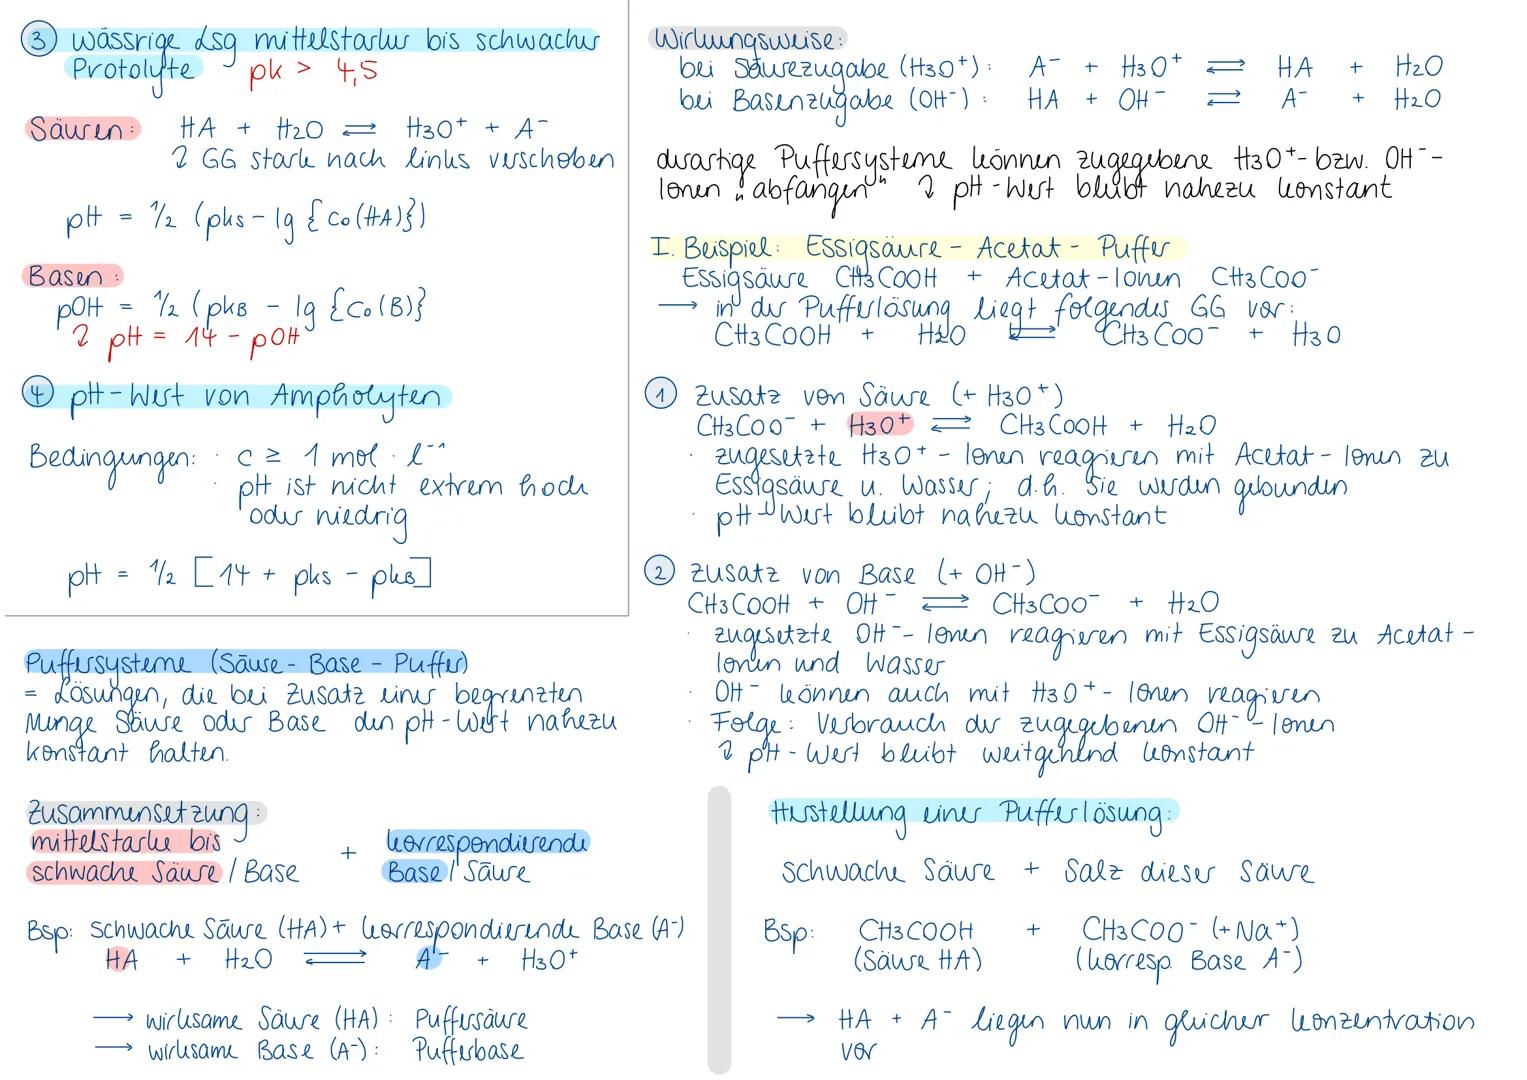 ③ wässrige Lsg mittelstarker bis schwacher
Protolyte pk > 4,5
Säuren: HA + H2O ⇌ H3O+ + A-
↷ GG stark nach links verschoben
pH = 1/2 (pks - lg {c0(HA)})
Basen:
pOH = 1/2 (pkB - lg {c0(B)}
↷ pH = 14 - pOH
④ pH-Wert von Ampholyten
Bedingungen: · c ≥ 1 mol · l-1
· pH ist nicht extrem hoch
oder niedrig
pH = 1/2 [14 + pks - pkB]
Puffersysteme (Säure-Base-Puffer)
= Lösungen, die bei Zusatz einer begrenzten
Menge Säure oder Base den pH-Wert nahezu
konstant halten.
Zusammensetzung:
mittelstarke bis
schwache Säure / Base + korrespondierende
Base / Säure
Bsp: schwache Säure (HA) + korrespondierende Base (A-)
HA + H2O ⇌ A- + H3O+
→ wirksame Säure (HA): Puffersäure
→ wirksame Base (A-): Pufferbase
Wirkungsweise:
bei Säurezugabe (H3O+): A- + H3O+ ⇌ HA + H2O
bei Basenzugabe (OH-): HA + OH- ⇌ A- + H2O
derartige Puffersysteme können zugegebene H3O+- bzw. OH--
Ionen „abfangen" ↷ pH-Wert bleibt nahezu konstant
I. Beispiel: Essigsäure - Acetat - Puffer
Essigsäure CH3COOH + Acetat-Ionen CH3COO-
→ in der Pufferlösung liegt folgendes GG vor:
CH3COOH + H2O ⇌ CH3COO- + H3O
① Zusatz von Säure (+ H3O+)
CH3COO- + H3O+ ⇌ CH3COOH + H2O
· zugesetzte H3O+ - Ionen reagieren mit Acetat-Ionen zu
Essigsäure u. Wasser; d.h. sie werden gebunden
· pH-Wert bleibt nahezu konstant
② Zusatz von Base (+ OH-)
CH3COOH + OH- ⇌ CH3COO- + H2O
· zugesetzte OH-- Ionen reagieren mit Essigsäure zu Acetat-
Ionen und Wasser
· OH- können auch mit H3O+- Ionen reagieren
· Folge: Verbrauch der zugegebenen OH--Ionen
↷ pH-Wert bleibt weitgehend konstant
Herstellung einer Pufferlösung:
schwache Säure + Salz dieser Säure
Bsp: CH3COOH + CH3COO- (+Na+)
(Säure HA) (korresp. Base A-)
→ HA + A- liegen nun in gleicher Konzentration
vor